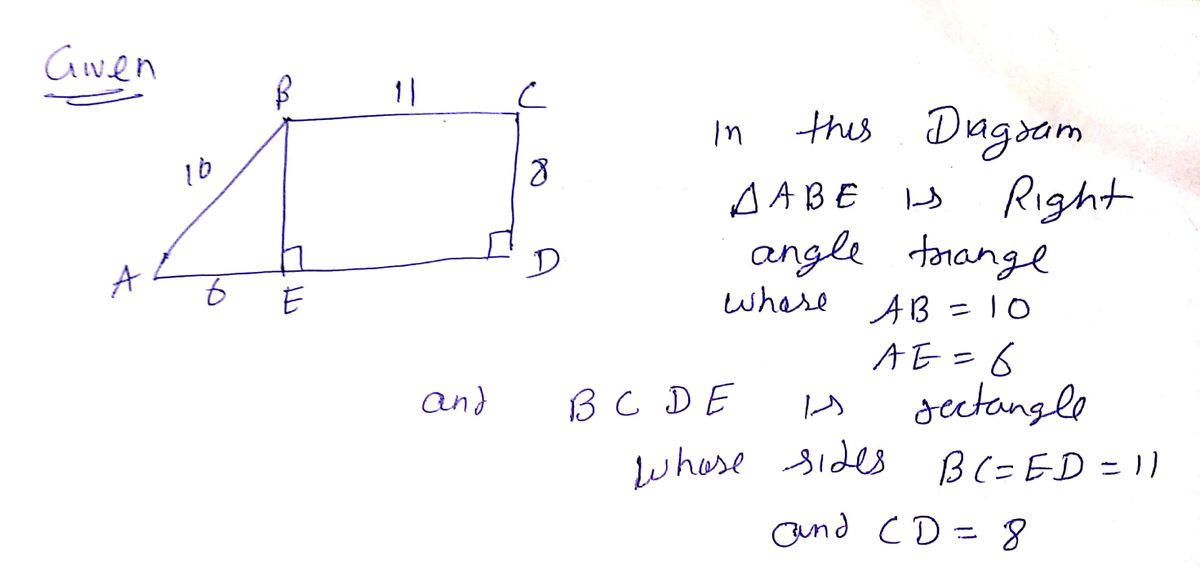 Given
B 11 C
10
8
A 6 E D
In this Diagram
△ABE is Right
angle triange
whose AB = 10
AE = 6
and BCDE is rectangle
whose sides BC=ED=11
and CD = 8